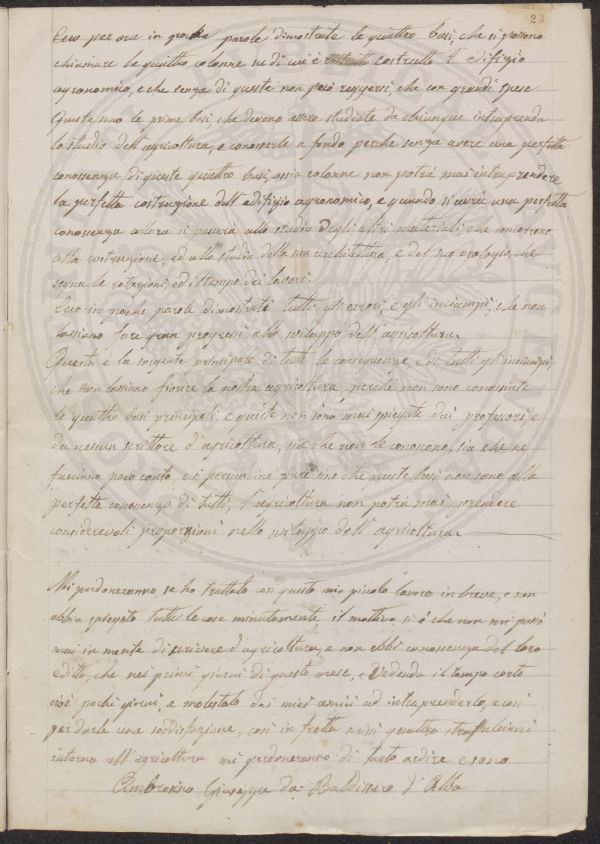 23
Ecco per ora in poche parole dimostrate le quattro basi, che si possono
chiamare le quattro colonne su di cui è costrutto l'edifizio
agronomico, e che senza di queste non può reggersi, che con grandi spese
Queste sono le prime basi, che devono essere studiate da chiunque intraprenda
lo studio dell'agricoltura, e conoscerle a fondo perche senza avere una perfetta
conossenza di queste quattro basi, ossia colonne non potrà mai intraprendere
la perfetta costruzione dell'edifizio agronomico, e quando si avrà una perfetta
conossenza allora si passerà allo studio degli altri materiali che concorrono
alla costruzione, ed allo studio della sua architettura, e del suo orologio, che
segna le rotazioni, ed il tempo dei lavori.
Ecco in poche parole dimostrati tutti gli errori, e gli inciampi, che non
lassiano fare gran progressi allo sviluppo dell'agricoltura.
Questa è la sorgente principale di tutte le conseguenze, e di tutti gli inciampi,
che non lassiano fiorire la nostra agricoltura, perchè non sono conossiute
le quattro basi principali, e queste non sono mai spiegate dai professori, e
da nessun scrittore d'agricoltura, sia che non le conoscono, sia che ne
facciano poco conto, e si persuadino pure sino che queste basi non sono alla
perfetta conossenza di tutti, l'agricoltura non potrà mai prendere
considerevoli proporzioni nello sviluppo dell'agricoltura.
Mi perdoneranno, se ho trattato con questo mio piccolo lavoro in breve, e non
abbia spiegato tutte le cose minutamente, il mottivo si è che non mi passò
mai in mente di scrivere d'agricoltura, e non ebbi conossenza del loro
editto, che nei primi giorni di questo mese, e vedendo il tempo corto
cioè pochi giorni, e molestato dai miei amici ad intraprenderlo, e così
per darle una soddisfazione, così in fretta scrissi quattro strafalcioni
intorno all'agricoltura mi perdoneranno di tanto ardire e sono
Ambrosino Giuseppe da Baldissero d'Alba